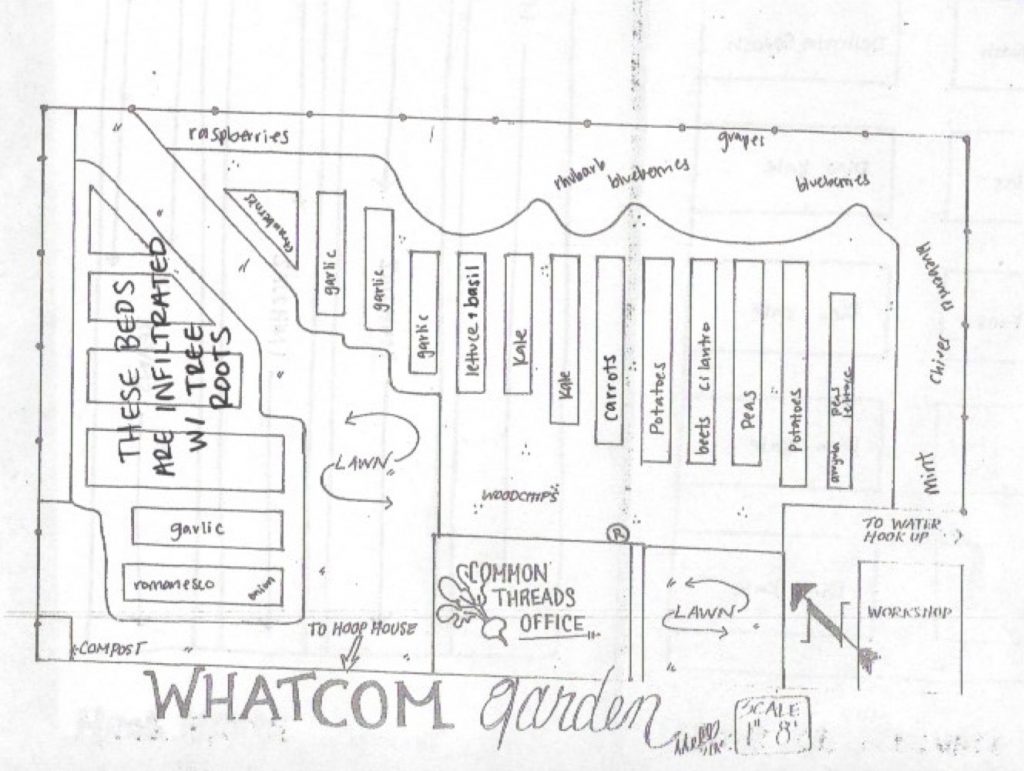 raspberries
grapes
rhubarb
blueberries
blueberries
strawberries
garlic
garlic
garlic
lettuce + basil
Kale
Kale
carrots
Potatoes
beets cilantro
Peas
Potatoes
arugula peas
lettuce
blueberries
Chives
Mint
THESE BEDS
ARE INFILTRATED
W/ TREE
ROOTS
LAWN
WOODCHIPS
garlic
romanesco
onion
TO WATER
HOOK UP
R
COMMON
THREADS
OFFICE
LAWN
N
WORKSHOP
COMPOST
TO HOOP HOUSE
WHATCOM garden
SCALE
1" 8'